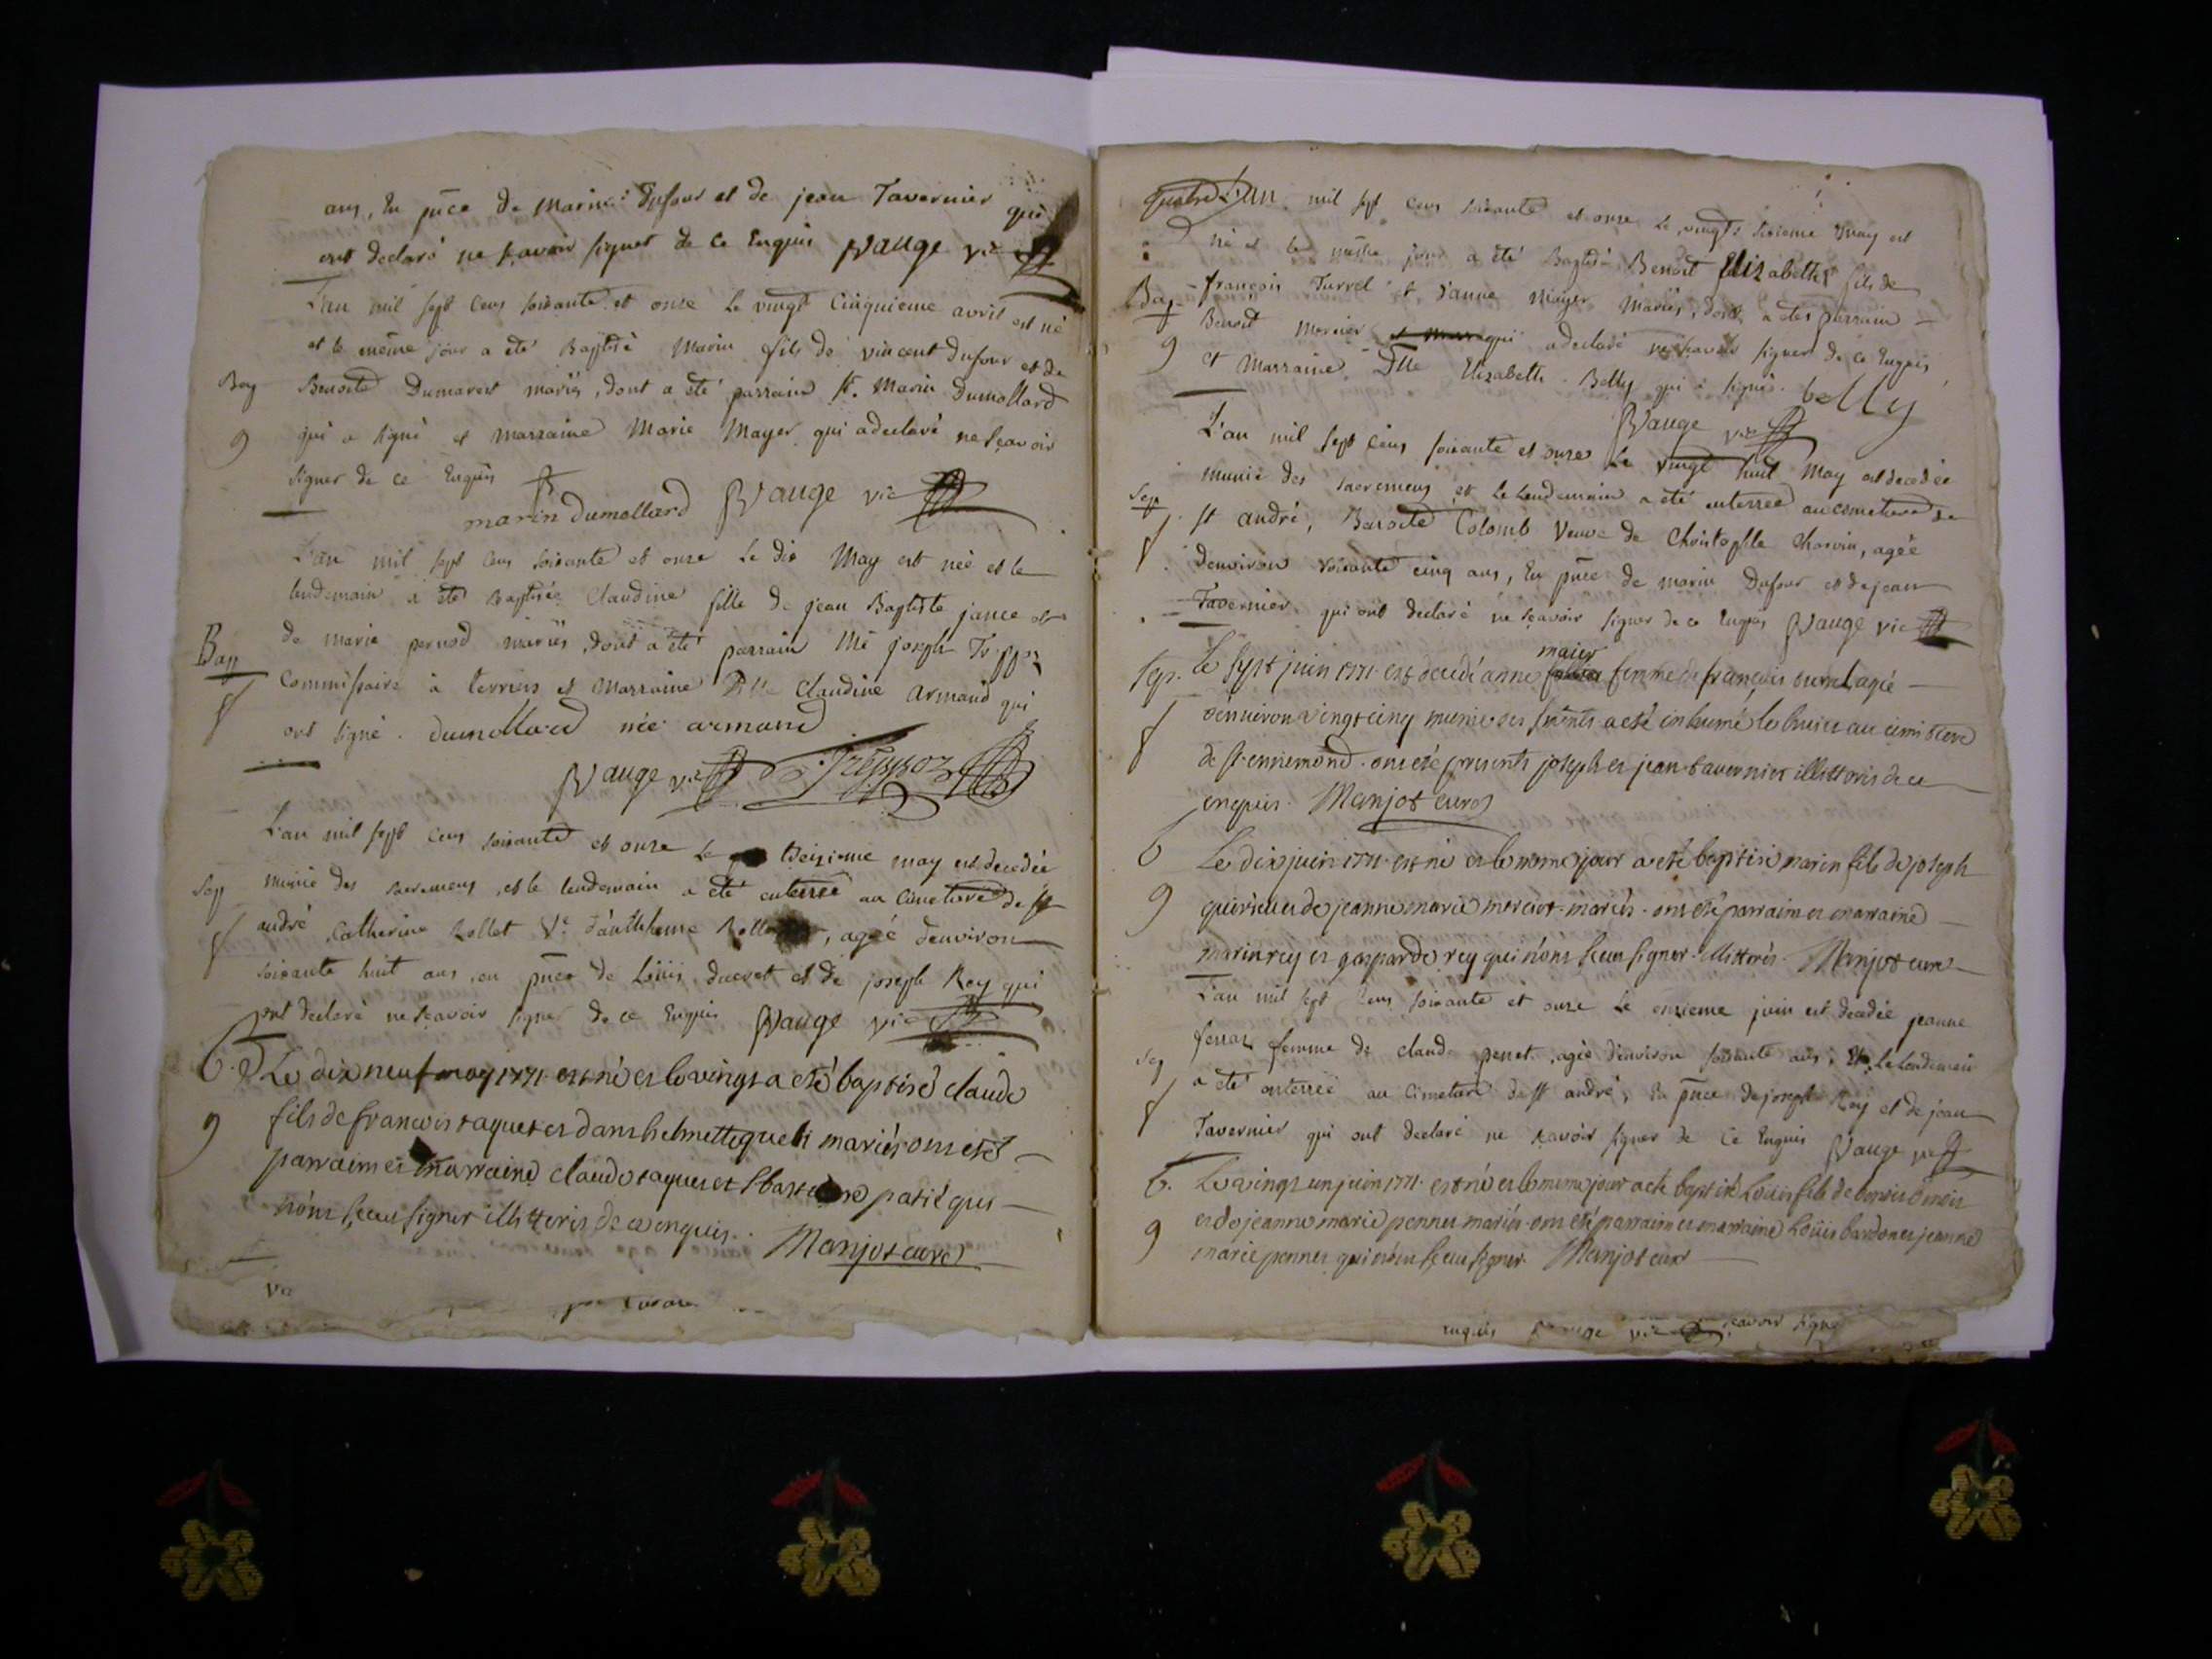 ans, En pnce de Marin Dufour et de jean Tavernier qui
ont declaré ne sçavoir signer de ce Enquis Vauge vic
L'an mil sept cens soixante et onze Le vingt Cinquieme avril est né
et le même jour a été Baptisé Marin fils de vincent dufour et de
Bap Benoite Dumarest mariés, dont a été parrain sr. Marin Dumollard
9 qui a signé et Marraine Marie Mayer qui a declaré ne sçavoir
signer de ce Enquis
marin dumollard Vauge vic
L'an mil sept cens soixante et onze Le dix May est née et le
lendemain a été Baptisée Claudine fille de jean Baptiste jance et
Bap de marie pernod mariés, dont a été parrain Me joseph
f Commissaire à terriers et Marraine Dlle Claudine Armand qui
ont signé. dumollard née armand
Vauge vic
L'an mil sept cens soixante et onze Le treizieme may est decedée
Sep munie des sacremens, et le lendemain a été enterrée au Cimetiere de st
f andré, Catherine Rollet Ve d'anthelme, agée d'environ
soixante huit ans, en pnce de Loüis ducret et de joseph Rey qui
ont declaré ne sçavoir signer de ce Enquis Vauge vic
B. Le dix neuf may 1771 est né et le vingt a eté baptisé claude
9 fils de francois taquet et d'anthelmette mariés ont eté
parrain et marraine claude taquet et patié qui
n'ont sceu signer illitteris de ce enquis. Manjot curé
L'an mil sept cens soixante et onze Le vingt sixieme May est
né et le même jour a été Baptisé Benoit Elizabeth fils de
Bap françois Turrel et d'anne Mayer Mariés, dont a été parrain
9 Benoit Mercier qui a declaré ne sçavoir signer de ce Enquis
et Marraine Dlle Elizabeth Belly qui a signé. belly
Vauge vic
L'an mil sept cens soixante et onze Le vingt huit May est decedée
Sep munie des sacremens et le lendemain a été enterrée au cimetiere de
f st andré, Benoite Colomb Veuve de Christophle Charvin, agée
d'environ soixante cinq ans, En pnce de marin Dufour et de jean
Tavernier qui ont declaré ne sçavoir signer de ce Enquis Vauge vic
maier
Sep. Le sept juin 1771 est decedé anne femme de françois turrel agée
f d'environ vingt cinq munie des scrments a eté inhumé le huict au cimitiere
de st. ennemond. ont eté presents joseph et jean tavernier illitteris de ce
enquis. Manjot curé
B Le dix juin 1771 est né et le meme jour a eté baptisé marin fils de joseph
9 et de jeanne marie mercier mariés. ont eté parrain et marraine
marin rey et gasparde rey qui n'ont sceu signer illitteris. Manjot curé
L'an mil sept cens soixante et onze Le onzieme juin est decedée jeanne
Sep ferraz femme de claude perret, agée d'environ soixante ans, Et Le lendemain
f a été enterrée au Cimetiere de st andré, En pnce de joseph Rey et de jean
Tavernier qui ont declaré ne sçavoir signer de ce Enquis Vauge vic
B. Le vingt un juin 1771 est né et le meme jour a eté baptisé Louis fils de benoit
9 et de jeanne marie pennet mariés. ont eté parrain et marraine Loüis et jeanne
marie pennet qui n'ont sceu signer. Manjot curé
enquis Vauge vic sçavoir signé